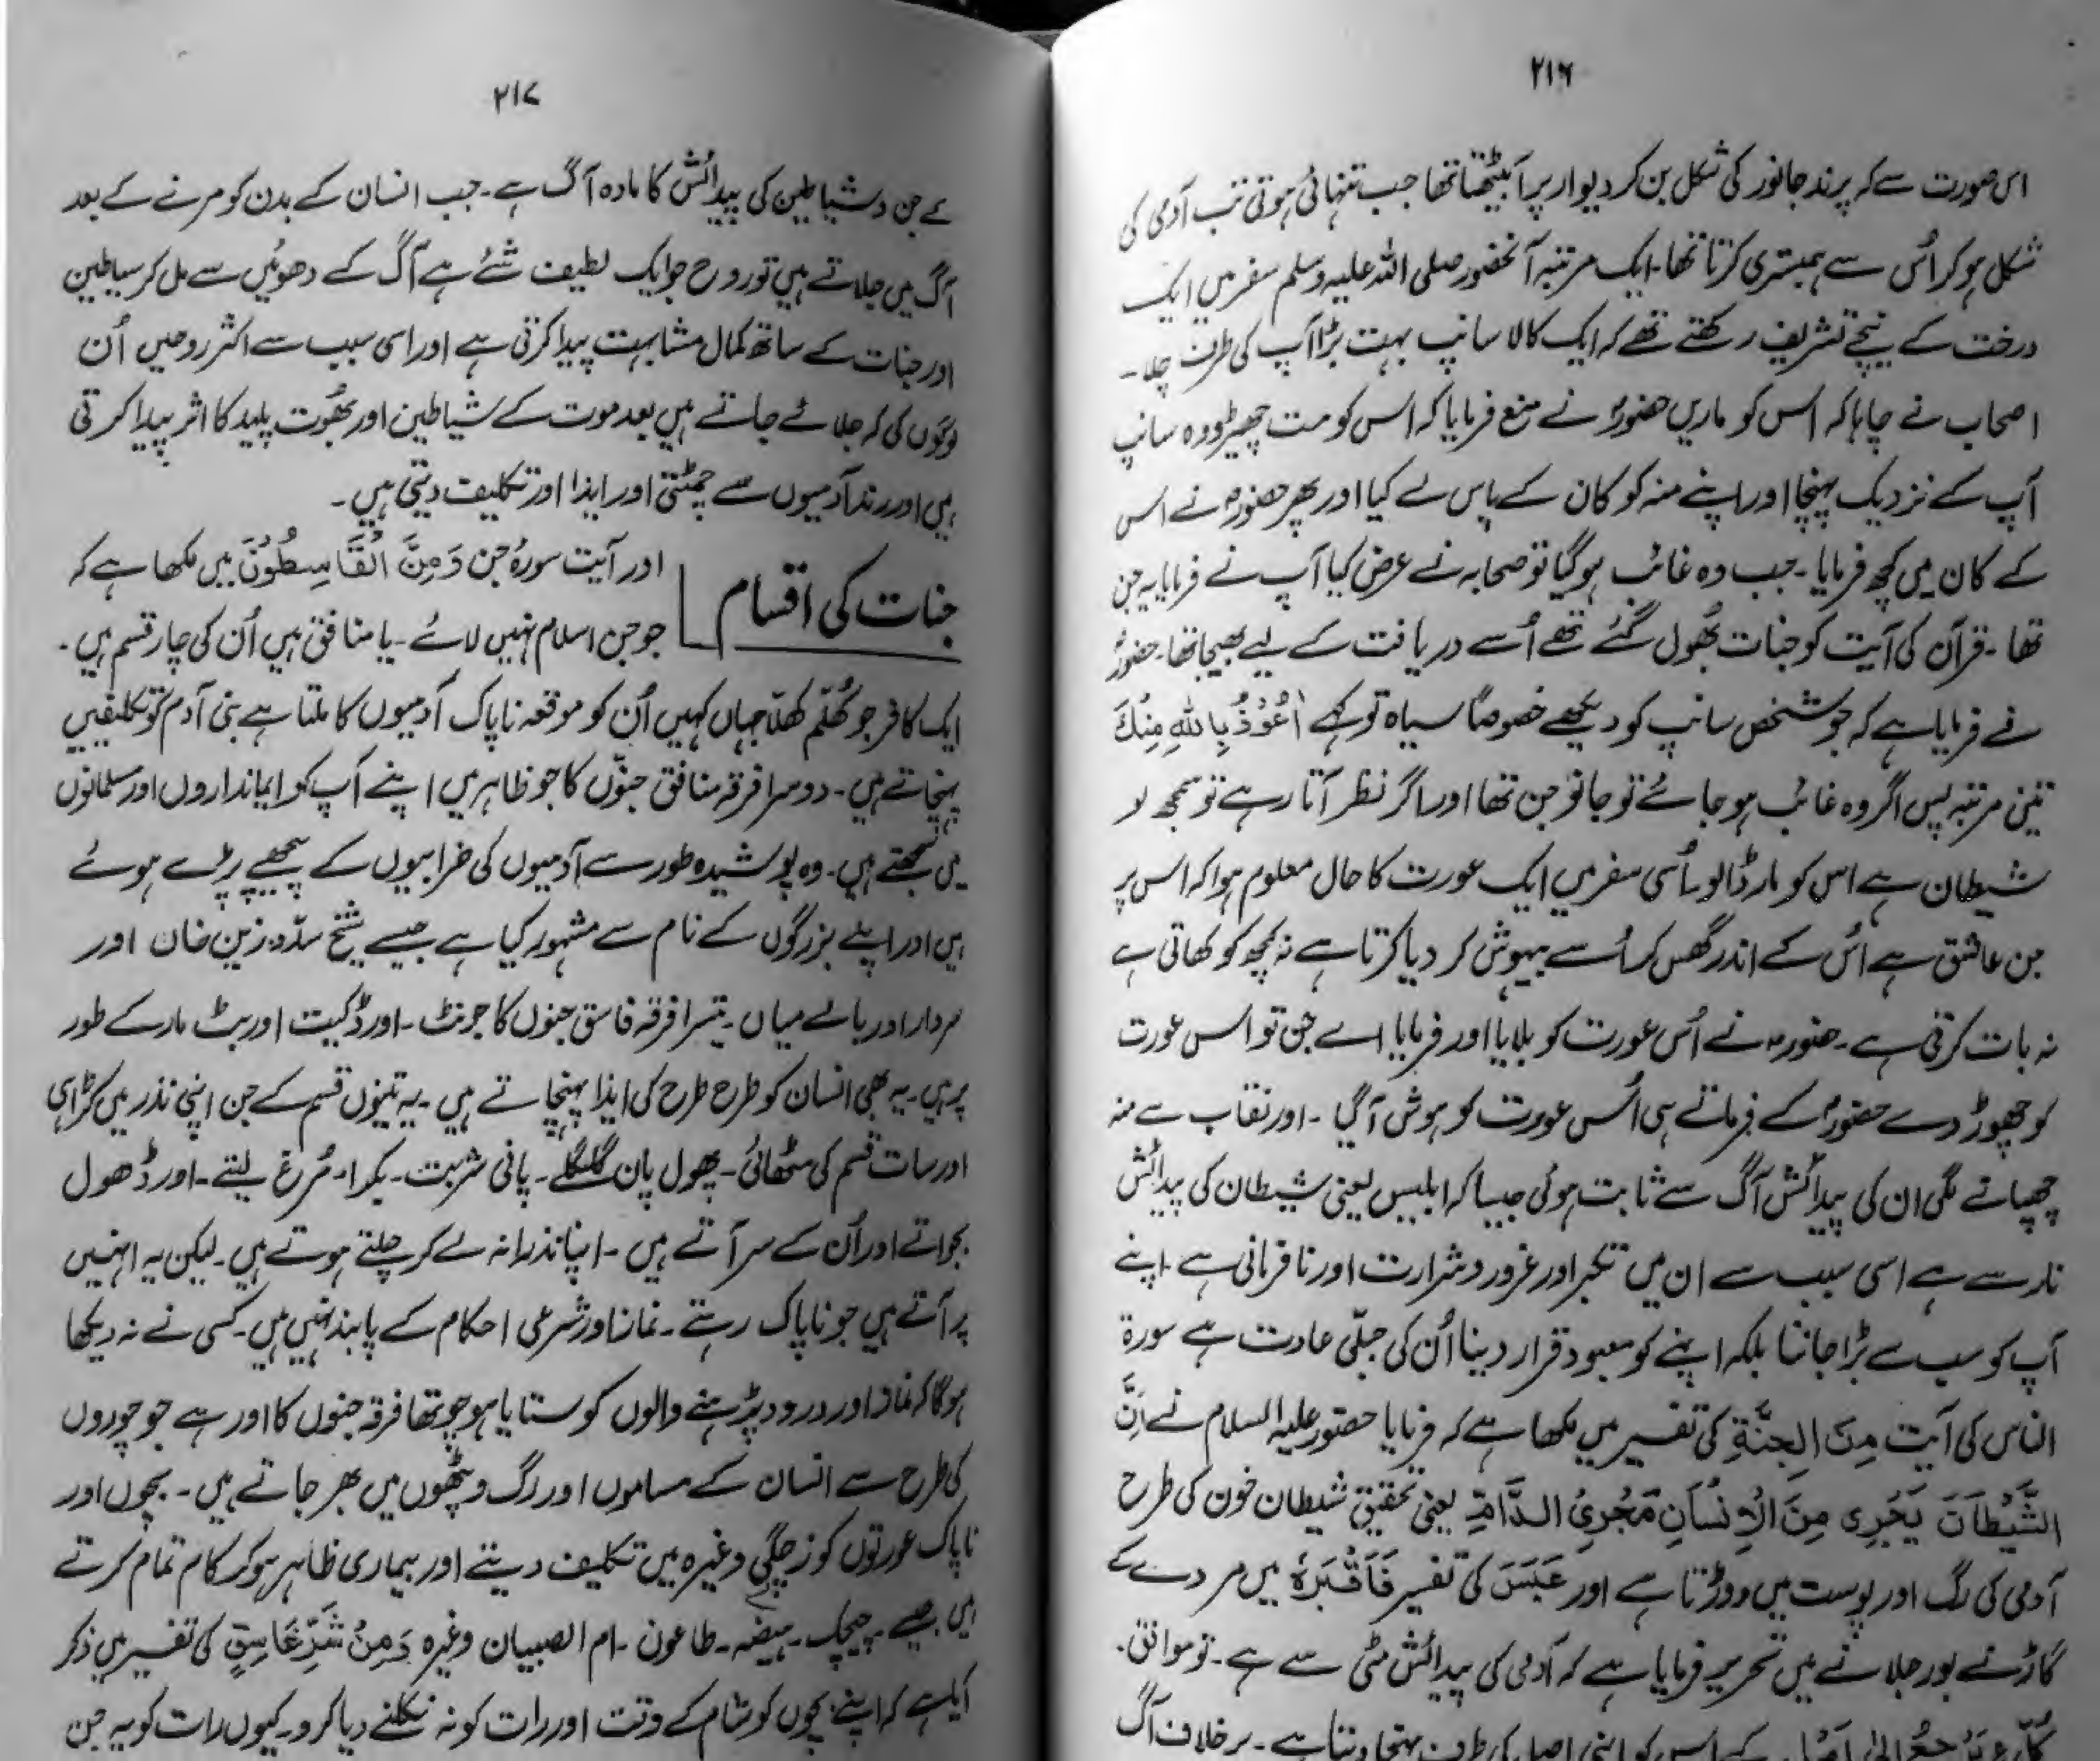 ۲۱۶
اس صورت سے کہ پرند جانور کی شکل بن کر دیوار پر آبیٹھتا تھا جب تنہائی ہوتی تب آدمی کی
شکل ہو کر اُس سے ہمبستری کرتا تھا۔ ایک مرتبہ آنحضور صلی اللہ علیہ وسلم سفر میں ایک
درخت کے نیچے تشریف رکھتے تھے کہ ایک کالا سانپ بہت بڑا آپ کی طرف چلا۔
اصحاب نے چاہا کہ اس کو ماریں حضورؐ نے منع فرمایا کہ اس کو مت چھیڑو وہ سانپ
آپ کے نزدیک پہنچا اور اپنے منہ کو کان کے پاس لے گیا اور پھر حضورؐ نے اس
کے کان میں کچھ فرمایا۔ جب وہ غائب ہو گیا تو صحابہ نے عرض کیا آپ نے فرمایا یہ جن
تھا۔ قرآن کی آیت کو جنات بھُول گئے تھے اُسے دریافت کے لیے بھیجا تھا۔ حضورؐ
نے فرمایا ہے کہ جو شخص سانپ کو دیکھے خصوصاً سیاہ تو کہے اَعُوْذُ بِاللّٰهِ مِنْكَ
تین مرتبہ پس اگر وہ غائب ہو جائے تو جانو جن تھا اور اگر نظر آتا رہے تو سمجھ لو
شیطان ہے اس کو مار ڈالو۔ اُسی سفر میں ایک عورت کا حال معلوم ہوا کہ اس پر
جن عاشق ہے اُس کے اندر گھس کر اُسے بیہوش کر دیا کرتا ہے نہ کچھ کو کھاتی ہے
نہ بات کرتی ہے۔ حضورؐ نے اُس عورت کو بلایا اور فرمایا اے جن تو اس عورت
کو چھوڑ دے حضورؐ کے فرماتے ہی اُس عورت کو ہوش آگیا۔ اور نقاب سے منہ
چھپانے لگی ان کی پیدائش آگ سے ثابت ہوئی جیسا کہ ابلیس یعنی شیطان کی پیدائش
نار سے ہے اسی سبب سے ان میں تکبر اور غرور و شرارت اور نافرمانی ہے اپنے
آپ کو سب سے بڑا جاننا بلکہ اپنے کو معبود قرار دینا اُن کی جبلّی عادت ہے سورۃ
الناس کی آیت مِنَ الْجِنَّةِ کی تفسیر میں لکھا ہے کہ فرمایا حضور علیہ السلام نے اِنَّ
الشَّيْطَانَ يَجْرِی مِنَ الْاِنْسَانِ مَجْرِیَ الدَّامِ یعنی تحقیق شیطان خون کی طرح
آدمی کی رگ اور پوست میں دوڑتا ہے اور عَبَسَ کی تفسیر فَاَقْبَرَهٗ میں مردے کے
گاڑنے اور جلانے میں تحریر فرمایا ہے کہ آدمی کی پیدائش مٹی سے ہے۔ تو موافق
اس کو اپنی اصل کی طرف پہنچا دیتا ہے۔ برخلاف آگ
۲۱۷
کے جن و شیاطین کی پیدائش کا مادہ آگ ہے۔ جب انسان کے بدن کو مرنے کے بعد
آگ میں جلاتے ہیں تو روح جو ایک لطیف شئے ہے آگ کے دھوئیں سے مل کر سیاطین
اور جنات کے ساتھ کمال مشابہت پیدا کرتی ہے اور اسی سبب سے اکثر روحیں اُن
لوگوں کی کہ جلائے جاتے ہیں بعد موت کے شیاطین اور بھُوت پلید کا اثر پیدا کرتی
ہیں اور آدمیوں سے چمٹتی اور ایذا اور تکلیف دیتی ہیں۔
جنات کی اقسام
اور آیت سورۂ جن وَمِنَّ الْقَاسِطُوْنَ میں لکھا ہے کہ
جو جن اسلام نہیں لائے۔ یا منافق ہیں اُن کی چار قسم ہیں۔
ایک کافر جو کھُلّم کھُلّا جہاں کہیں اُن کو موقعہ ناپاک آدمیوں کا ملتا ہے بنی آدم کو تکلیفیں
پہنچاتے ہیں۔ دوسرا فرقہ منافق جنّوں کا جو ظاہر میں اپنے آپ کو ایمانداروں اور مسلمانوں
میں سمجھتے ہیں۔ وہ پوشیدہ طور سے آدمیوں کی خرابیوں کے پیچھے پڑے ہوئے
ہیں اور اپنے بزرگوں کے نام سے مشہور کیا ہے جیسے شیخ سدّو۔ زین خان اور
سردار اور بالے میاں۔ تیسرا فرقہ فاسق جنوں کا جو نٹ۔ اور ڈکیت اور بٹ مار کے طور
پر ہیں۔ یہ بھی انسان کو طرح طرح کی ایذا پہنچاتے ہیں۔ یہ تینوں قسم کے جن اپنی نذر میں کڑاہی
اور سات قسم کی مٹھائی۔ پھول پان گلگلے۔ پانی شربت۔ بکرا۔ مُرغ لیتے۔ اور ڈھول
بجواتے اور اُن کے سر آتے ہیں۔ اپنا نذرانہ لے کر چلتے ہوتے ہیں۔ لیکن یہ انہیں
پر آتے ہیں جو ناپاک رہتے۔ نماز اور شرعی احکام کے پابند نہیں ہیں۔ کسی نے نہ دیکھا
ہوگا کہ نماز اور درود پڑہنے والوں کو ستایا ہو چوتھا فرقہ جنوں کا اور ہے جو چوروں
کی طرح سے انسان کے مساموں اور رگ و پٹھوں میں بھر جاتے ہیں۔ بچوں اور
ناپاک عورتوں کو زچگی وغیرہ میں تکلیف دیتے اور بیماری ظاہر ہو کر کام تمام کرتے
ہیں جیسے چیچک۔ ہیضہ۔ طاعون۔ ام الصبیان وغیرہ وَمِنْ شَرِّ غَاسِقٍ کی تفسیر میں ذکر
آیا ہے کہ اپنے بچوں کو شام کے وقت اور رات کو نہ نکلنے دیا کرو۔ کیوں رات کو یہ جن